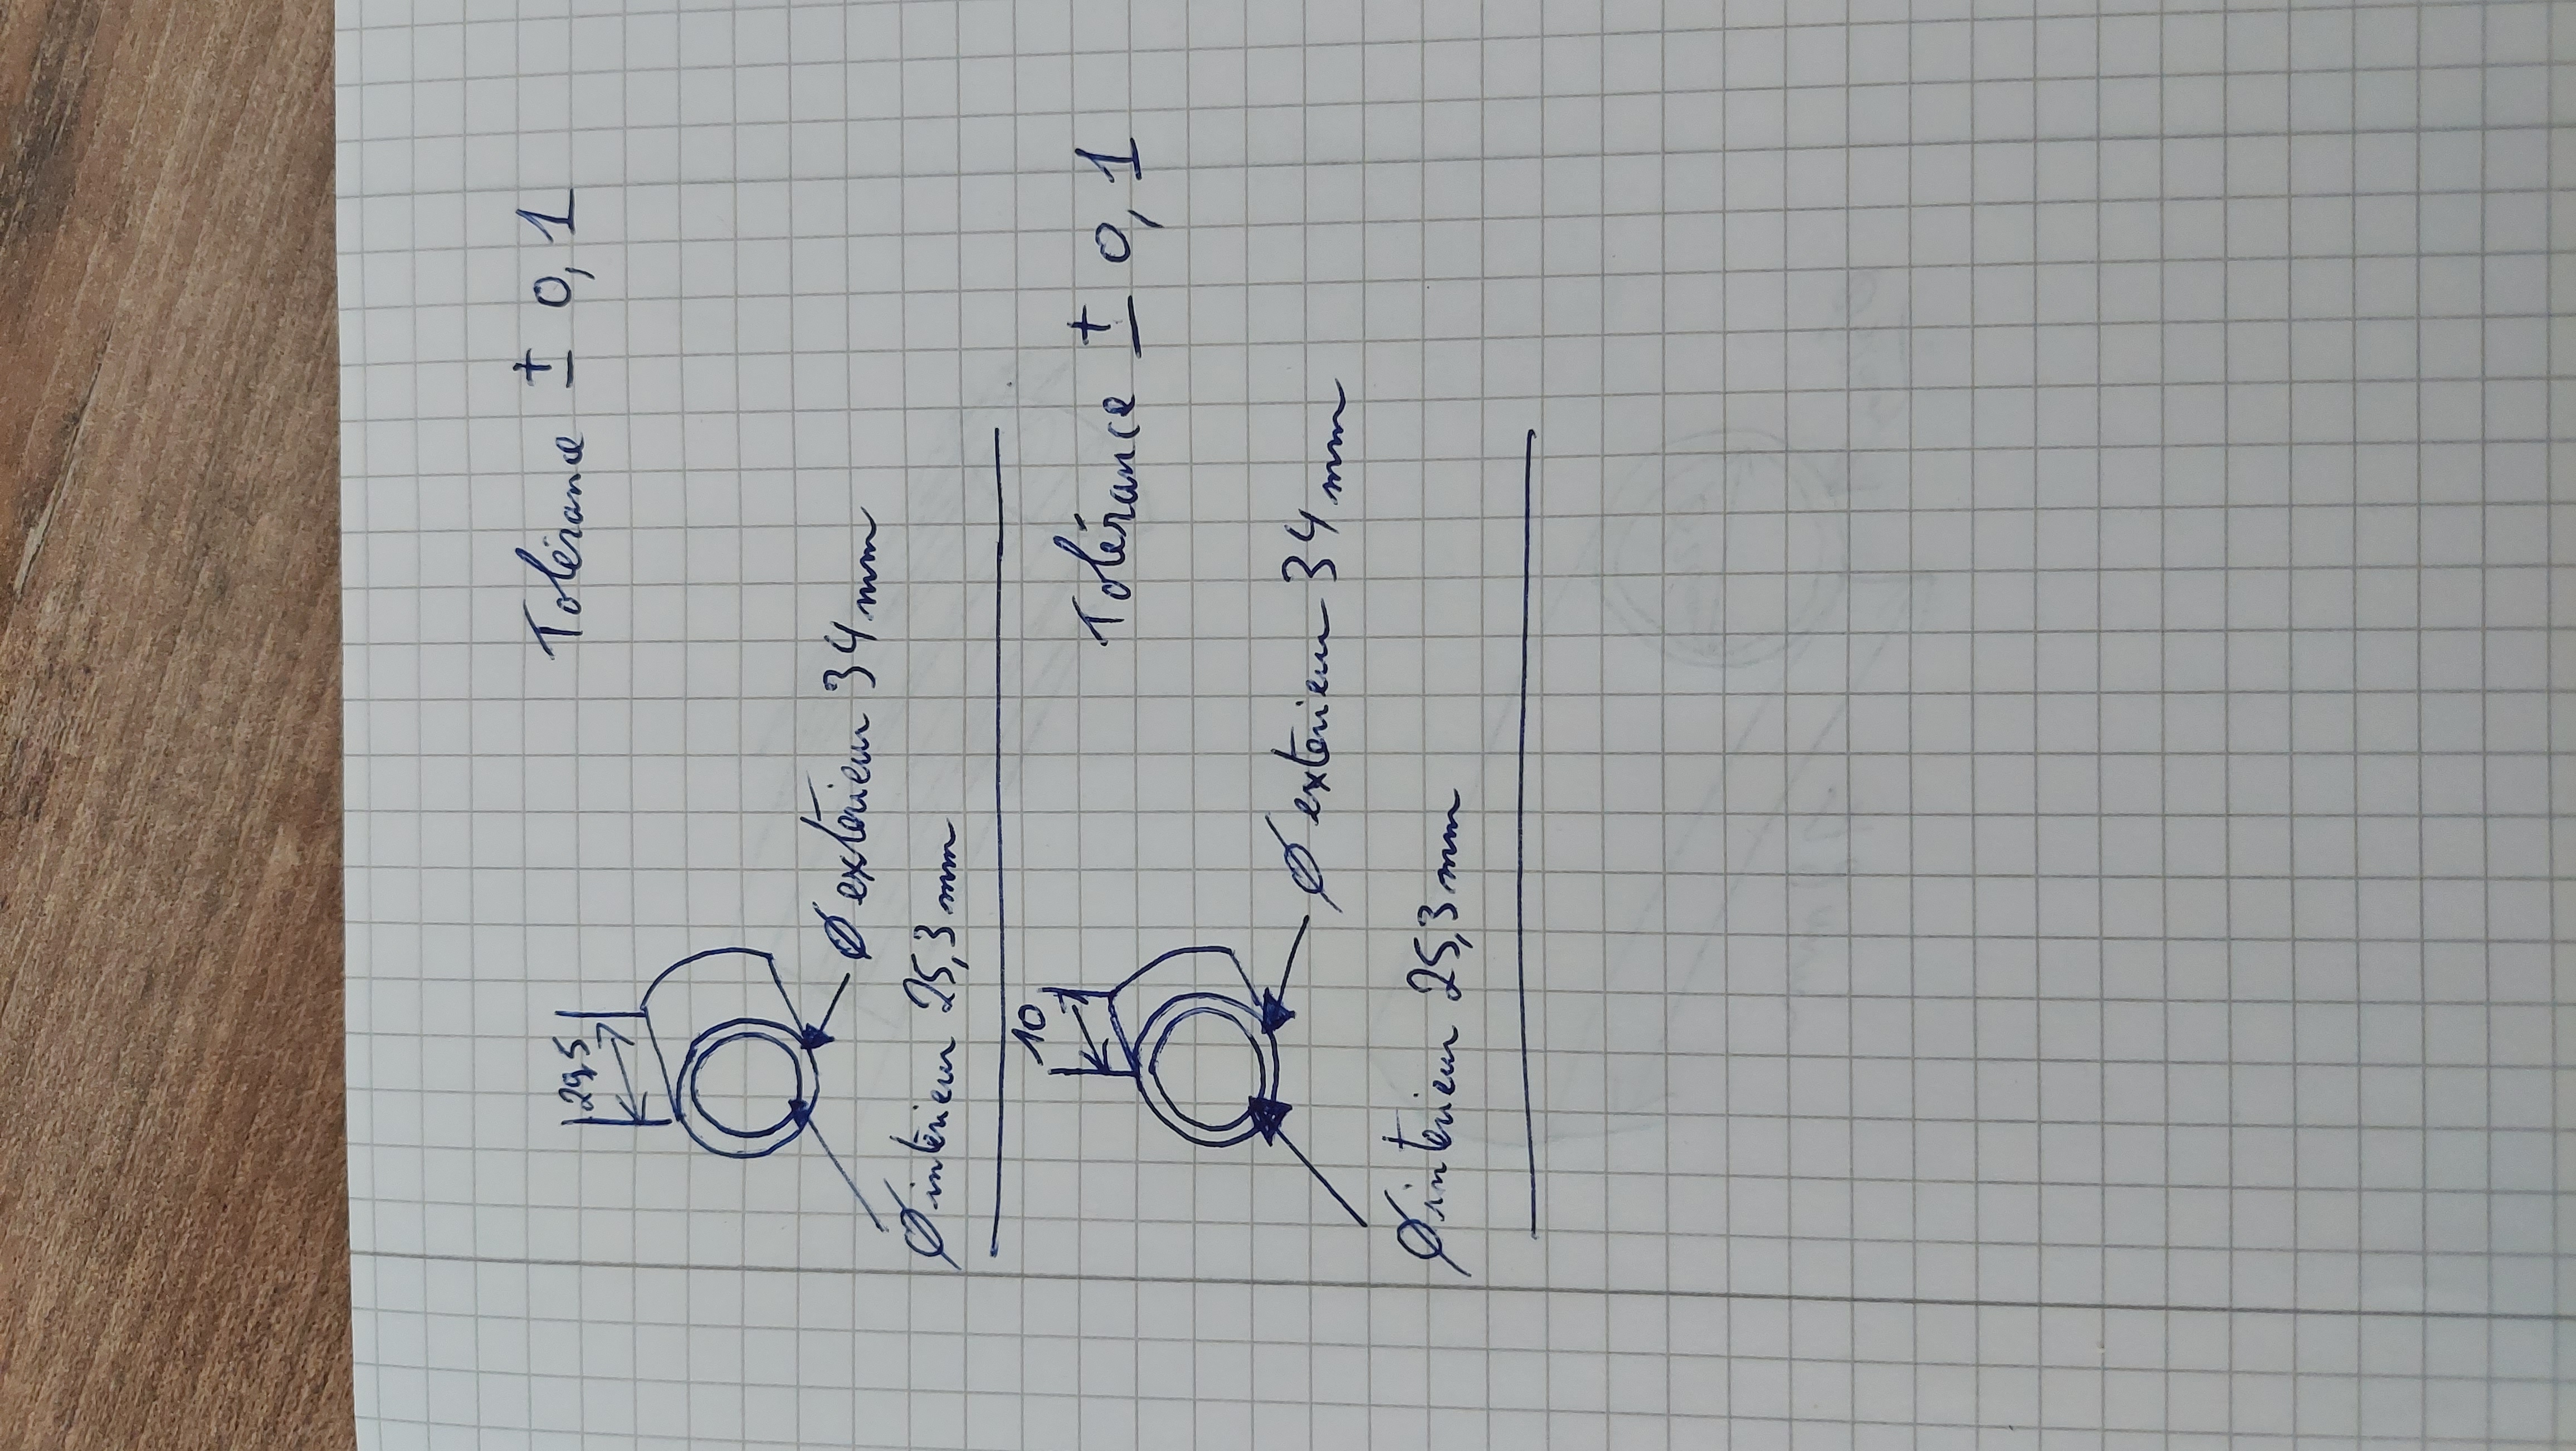 Tolérance ± 0,1
29,5
Ø extérieur 34 mm
Ø intérieur 25,3 mm
Tolérance ± 0,1
10
Ø extérieur 34 mm
Ø intérieur 25,3 mm